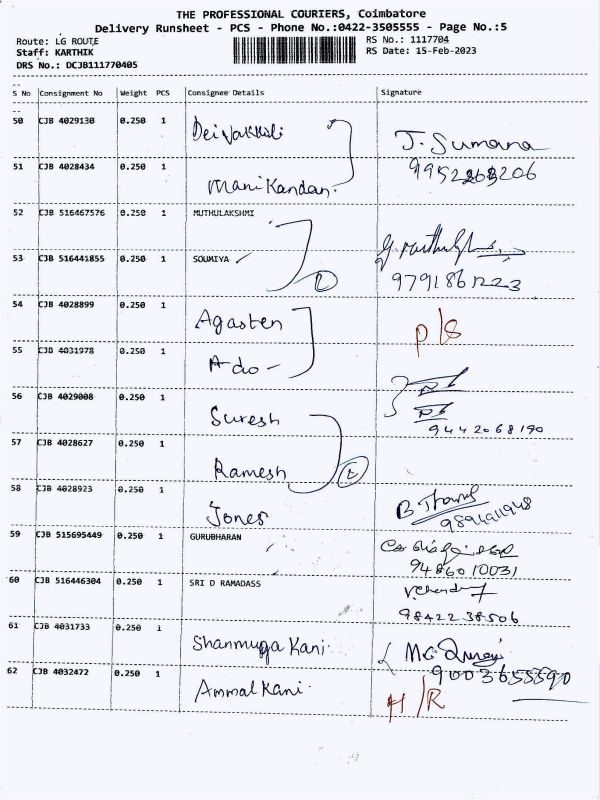 THE PROFESSIONAL COURIERS, Coimbatore
Delivery Runsheet - PCS - Phone No.:0422-3505555 - Page No.:5
Route: LG ROUTE
RS No.: 1117704
Staff: KARTHIK
RS Date: 15-Feb-2023
DRS No.: DCJB111770405
S No Consignment No Weight PCS Consignee Details Signature
50 CJB 4029130 0.250 1 Deivakkili J. Sumana
51 CJB 4028434 0.250 1 Manikandan.
52 CJB 516467576 0.250 1 MUTHULAKSHMI
53 CJB 516441855 0.250 1 SOUMIYA 9791861223
54 CJB 4028899 0.250 1 Agasten P/S
55 CJB 4031978 0.250 1 Ado -
56 CJB 4029008 0.250 1 Suresh 9442068190
57 CJB 4028627 0.250 1 Ramesh
58 CJB 4028923 0.250 1 Jones
59 CJB 515695449 0.250 1 GURUBHARAN 9486010031
60 CJB 516446304 0.250 1 SRI D RAMADASS 9842238506
61 CJB 4031733 0.250 1 Shanmuga Kani
62 CJB 4032472 0.250 1 Ammal Kani. H/R